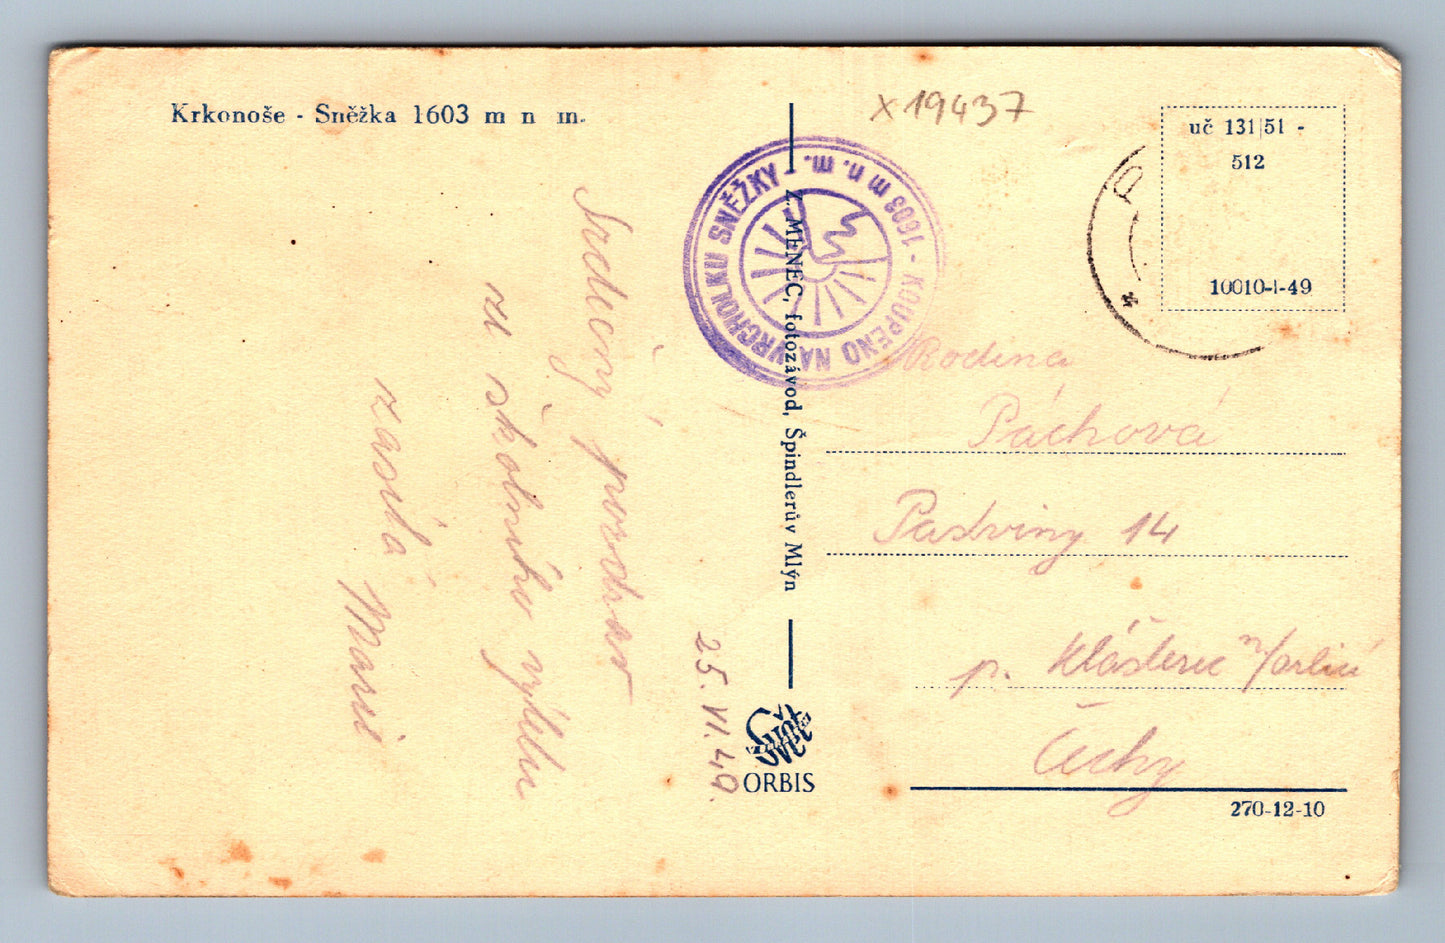 Krkonoše - Sněžka 1603 m n m.
x19437
uč 131|51 -
512
10010-I-49
KOUPENO NA VRCHOLKU SNĚŽKY - 1603 m n. m. -
Z. MENEC, fotozávod, Špindlerův Mlýn
Srdečný pozdrav
ze školního výletu
zasílá Marie
25. VI. 49.
Rodina
Páchová
Pastviny 14
p. Klášterec n/Orlicí
Čechy
ORBIS
270-12-10